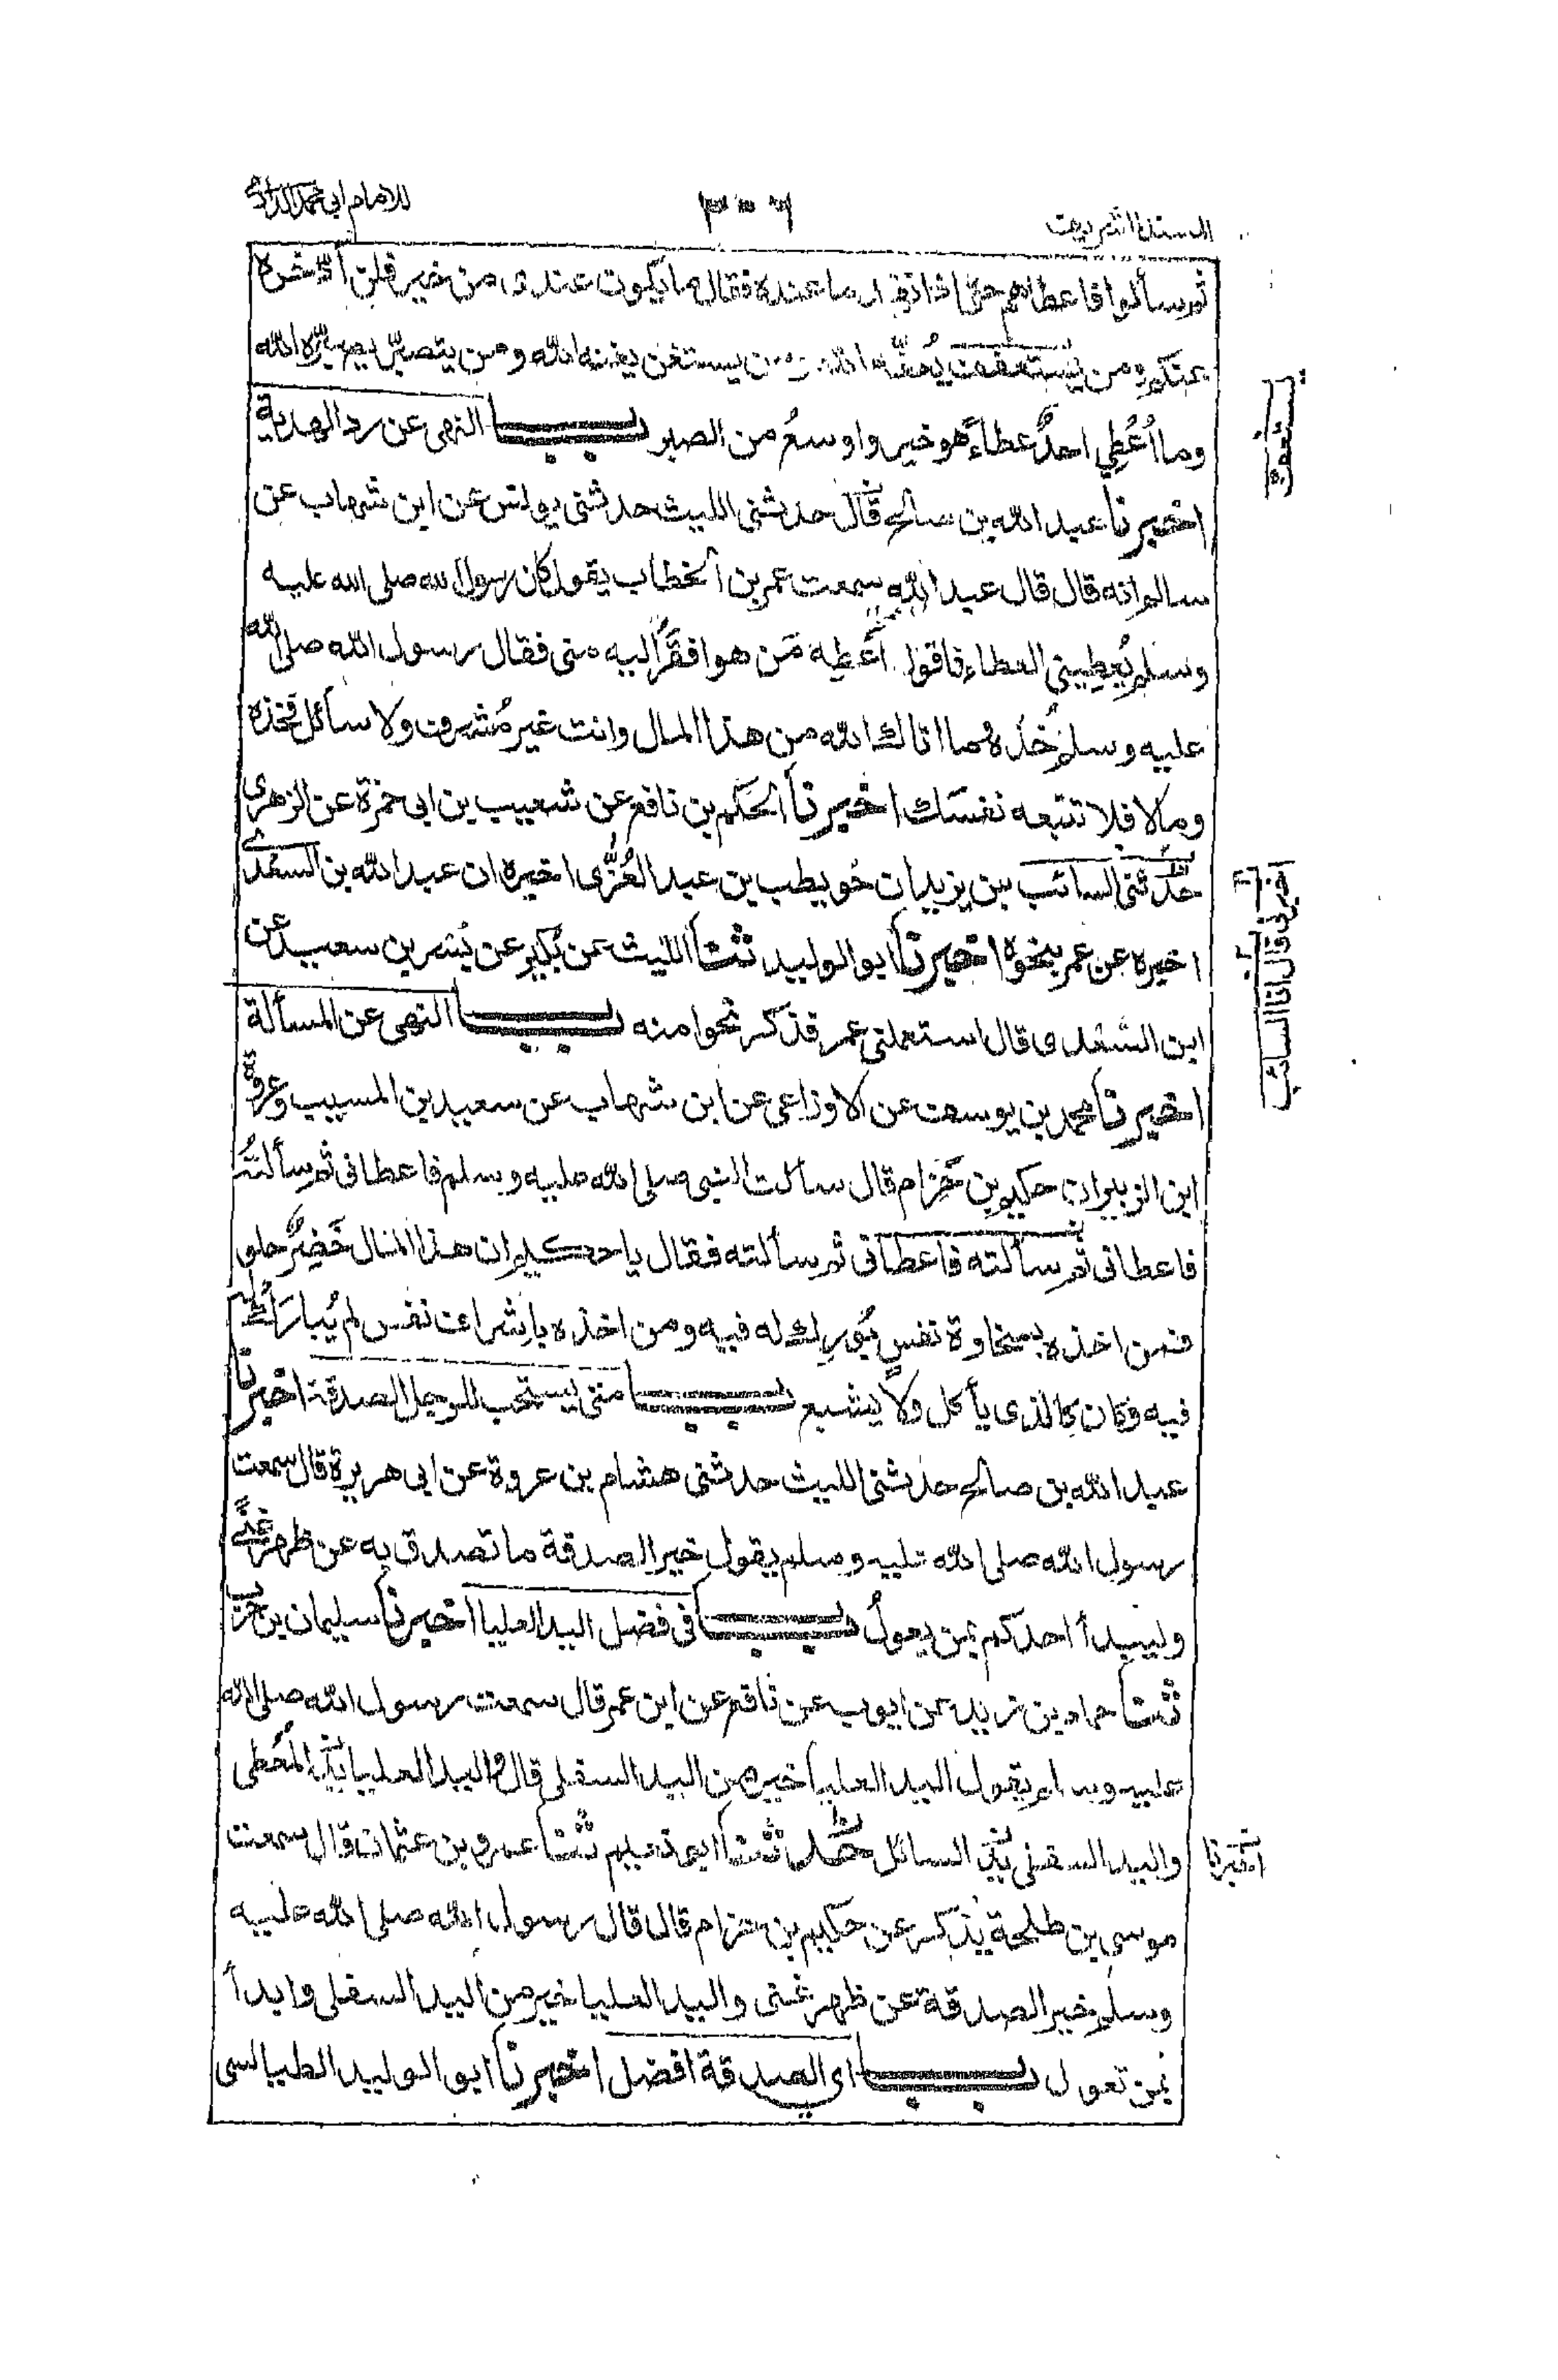 المسند الشريف
٢٠٦
للامام ابي محمد الدارمي
ثم سألوا فاعطاهم حتى اذا نفد ما عنده فقال ما يكون عندى من خير فلن ادّخره
عنكم ومن يستعفف يُعفّه الله ومن يستغن يغنه الله ومن يتصبّر يصبّره الله
وما اُعْطِي احدٌ عطاءً هو خير واوسعُ من الصبر باب النهى عن رد الهدية
اخبرنا عبد الله بن صالح قال حدثنى الليث حدثنى يونس عن ابن شهاب عن
سالم انه قال قال عبد الله سمعت عمر بن الخطاب يقول كان رسول الله صلى الله عليه
وسلم يُعطِينى العطاء فاقول اَعْطِه مَن هو افقَرُ اليه منى فقال رسول الله صلى الله
عليه وسلم خُذه وما اتاك الله من هذا المال وانت غير مُشرف ولا سائل فخذه
ومالا فلا تتبعه نفسَك اخبرنا الحَكم بن نافع عن شعيب بن ابى حمزة عن الزهرى
حدّثنى السائب بن يزيد ان حُويطب بن عبد العُزّى اخبره ان عبد الله بن السعدى
اخبره عن عمر بنحوه اخبرنا ابو الوليد ثنا الليث عن بُكير عن بُسر بن سعيد عن
ابن السَّعْدى قال استعملنى عمر فذكر نحوا منه باب النهى عن المسألة
اخبرنا محمد بن يوسف عن الاوزاعى عن ابن شهاب عن سعيد بن المسيب وعروة
ابن الزبير ان حكيم بن حزام قال سألت النبى صلى الله عليه وسلم فاعطانى ثم سألتُه
فاعطانى ثم سألته فاعطانى ثم سألته فقال يا حكيم ان هذا المال خَضِرٌ حلو
فمن اخذه بسخاوة نفسٍ بُورِك له فيه ومن اخذه باِشراف نفس لم يُبارَك له
فيه وكان كالذى يأكل ولا يشبع باب متى يستحب للرجل الصدقة اخبرنا
عبد الله بن صالح حدثنى الليث حدثنى هشام بن عروة عن ابى هريرة قال سمعت
رسول الله صلى الله عليه وسلم يقول خير الصدقة ما تصدق به عن ظهر غنًى
وليبدأ احدكم بمن يعولُ باب فى فضل اليد العليا اخبرنا سليمان بن حرب
ثنا حماد بن زيد عن ايوب عن نافع عن ابن عمر قال سمعت رسول الله صلى الله
عليه وسلم يقول اليد العليا خير من اليد السفلى قال واليد العليا يَد المُعْطى
واليد السفلى يَد السائل حدثنا ابو نعيم ثنا عمرو بن عثمان قال سمعت
موسى بن طلحة يذكر عن حكيم بن حزام قال قال رسول الله صلى الله عليه
وسلم خير الصدقة عن ظهر غنى واليد العليا خير من اليد السفلى وابدأ
بمن تعول باب اى الصدقة افضل اخبرنا ابو الوليد الطيالسى
اخبرنى قال انا السائب
اخبرنا